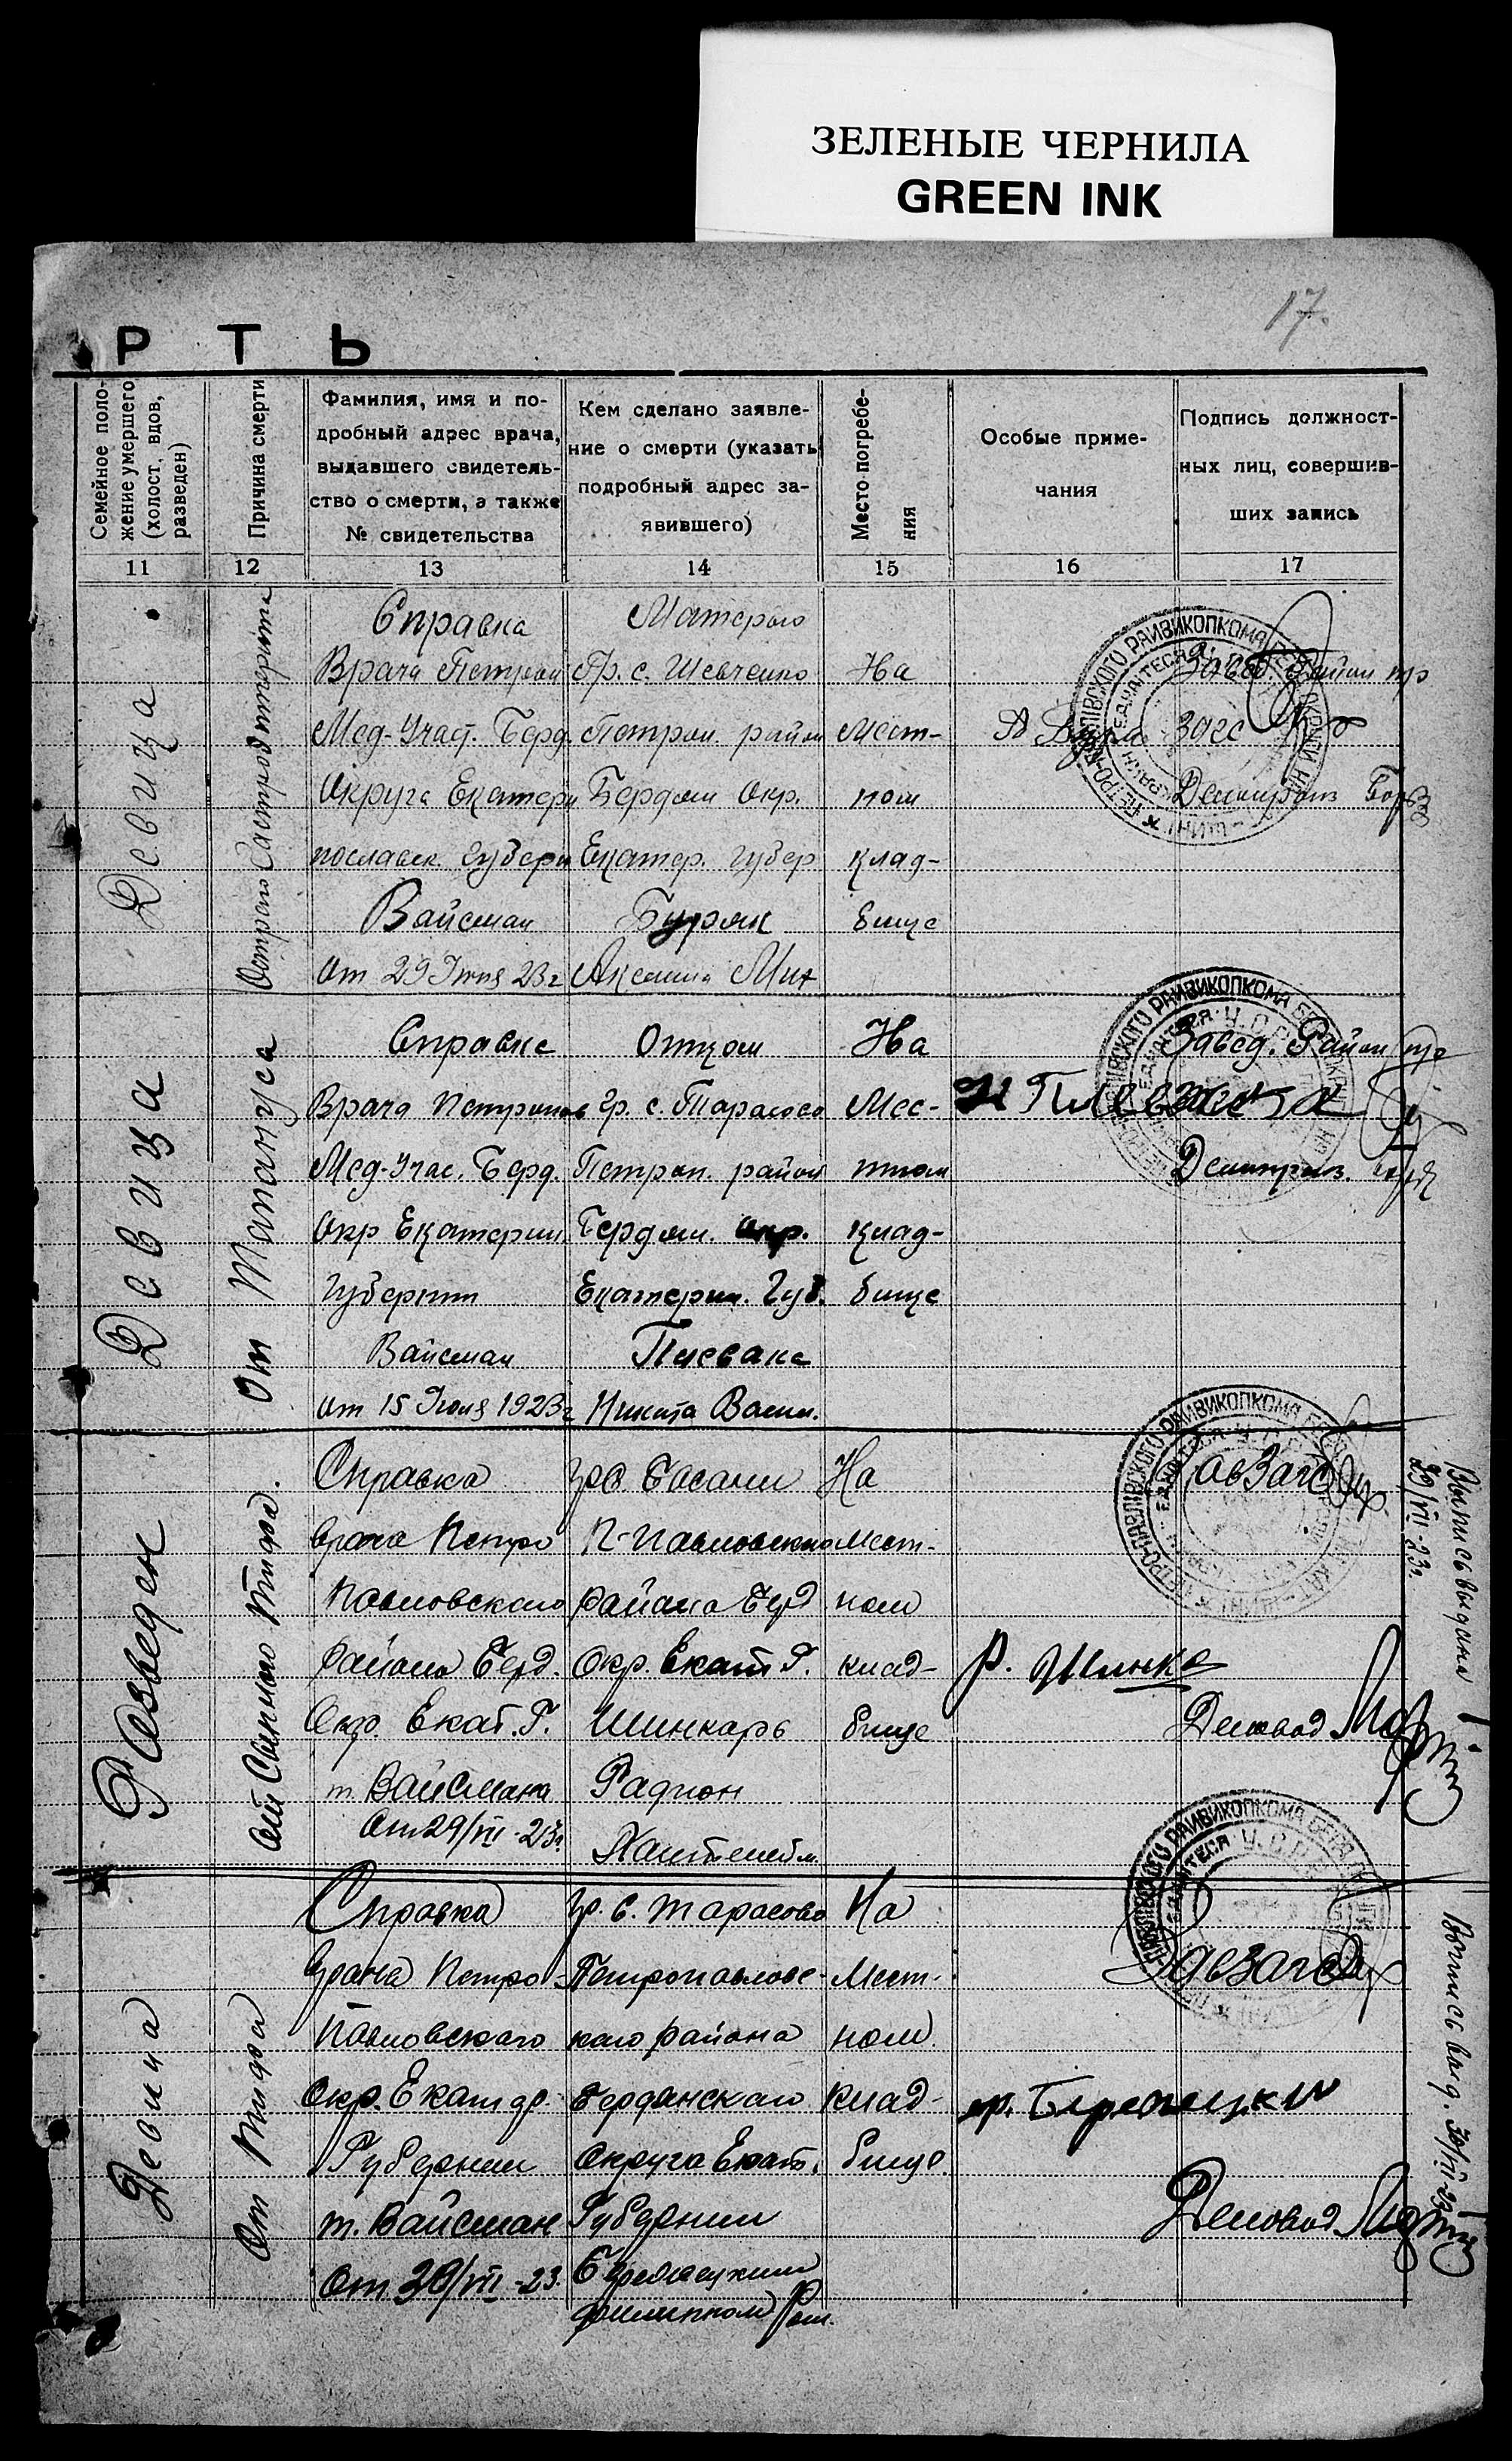 ЗЕЛЕНЫЕ ЧЕРНИЛА
GREEN INK
17.
РТЬ
Семейное поло-
жение умершего
(холост, вдов,
разведен)
Причина смерти
Фамилия, имя и по-
дробный адрес врача,
выдавшего свидетель-
ство о смерти, а также
№ свидетельства
Кем сделано заявле-
ние о смерти (указать
подробный адрес за-
явившего)
Место погребе-
ния
Особые приме-
чания
Подпись должност-
ных лиц, совершив-
ших запись
11 12 13 14 15 16 17
Девица
Справка
Врача Петропав
Мед-Участ. Берд.
Округа Екатери
нославск. Губерн
Вайсман
от 29 Июня 23 г
Матерью
Гр. с. Шевченко
Петропав. район
Бердян. Окр.
Екатер. Губер
Буряк
Аксинья Мих
На
Мест-
ном
клад-
бище
Завед. Район
Загс
Делопроиз.
Девица
От
Справка
Врача Петропав
Мед-Учас. Берд.
Окр Екатерин.
Губернии
Вайсман
от 15 Июля 1923 г
Отцом
Гр. с. Тарасово
Петроп. район
Бердян. окр.
Екатерин. Губ.
Плевака
Никита Васил.
На
Мес-
тном
клад-
бище
Завед. Район
Н Плевака
Делопроиз.
Разведен
От Сыпного тифа.
Справка
врача Петро
Павловского
района Берд.
Окр. Екат. Г.
т. Вайсмана
От 29/VII-23г.
гр с Басани
П-Павловского
района Берд
Окр. Екат Г.
Шинкарь
Радион
Пантелейм.
На
Мест-
ном
клад-
бище
ЗавЗагс
Р. Шинка
Деловод
Выпись выдана
29/VII-23г.
Девица
От тифа
Справка
врача Петро-
Павловского
Окр. Екатер.
Губернии
т. Вайсман
От 30/VII-23.
гр. с. Тарасово
Петропавловс-
кого района
Бердянского
округа Екат.
Губернии
Филиппом Ром.
На
Мест-
ном
клад-
бище.
ЗавЗагс
Деловод
Выпись выд. 30/VII-23г